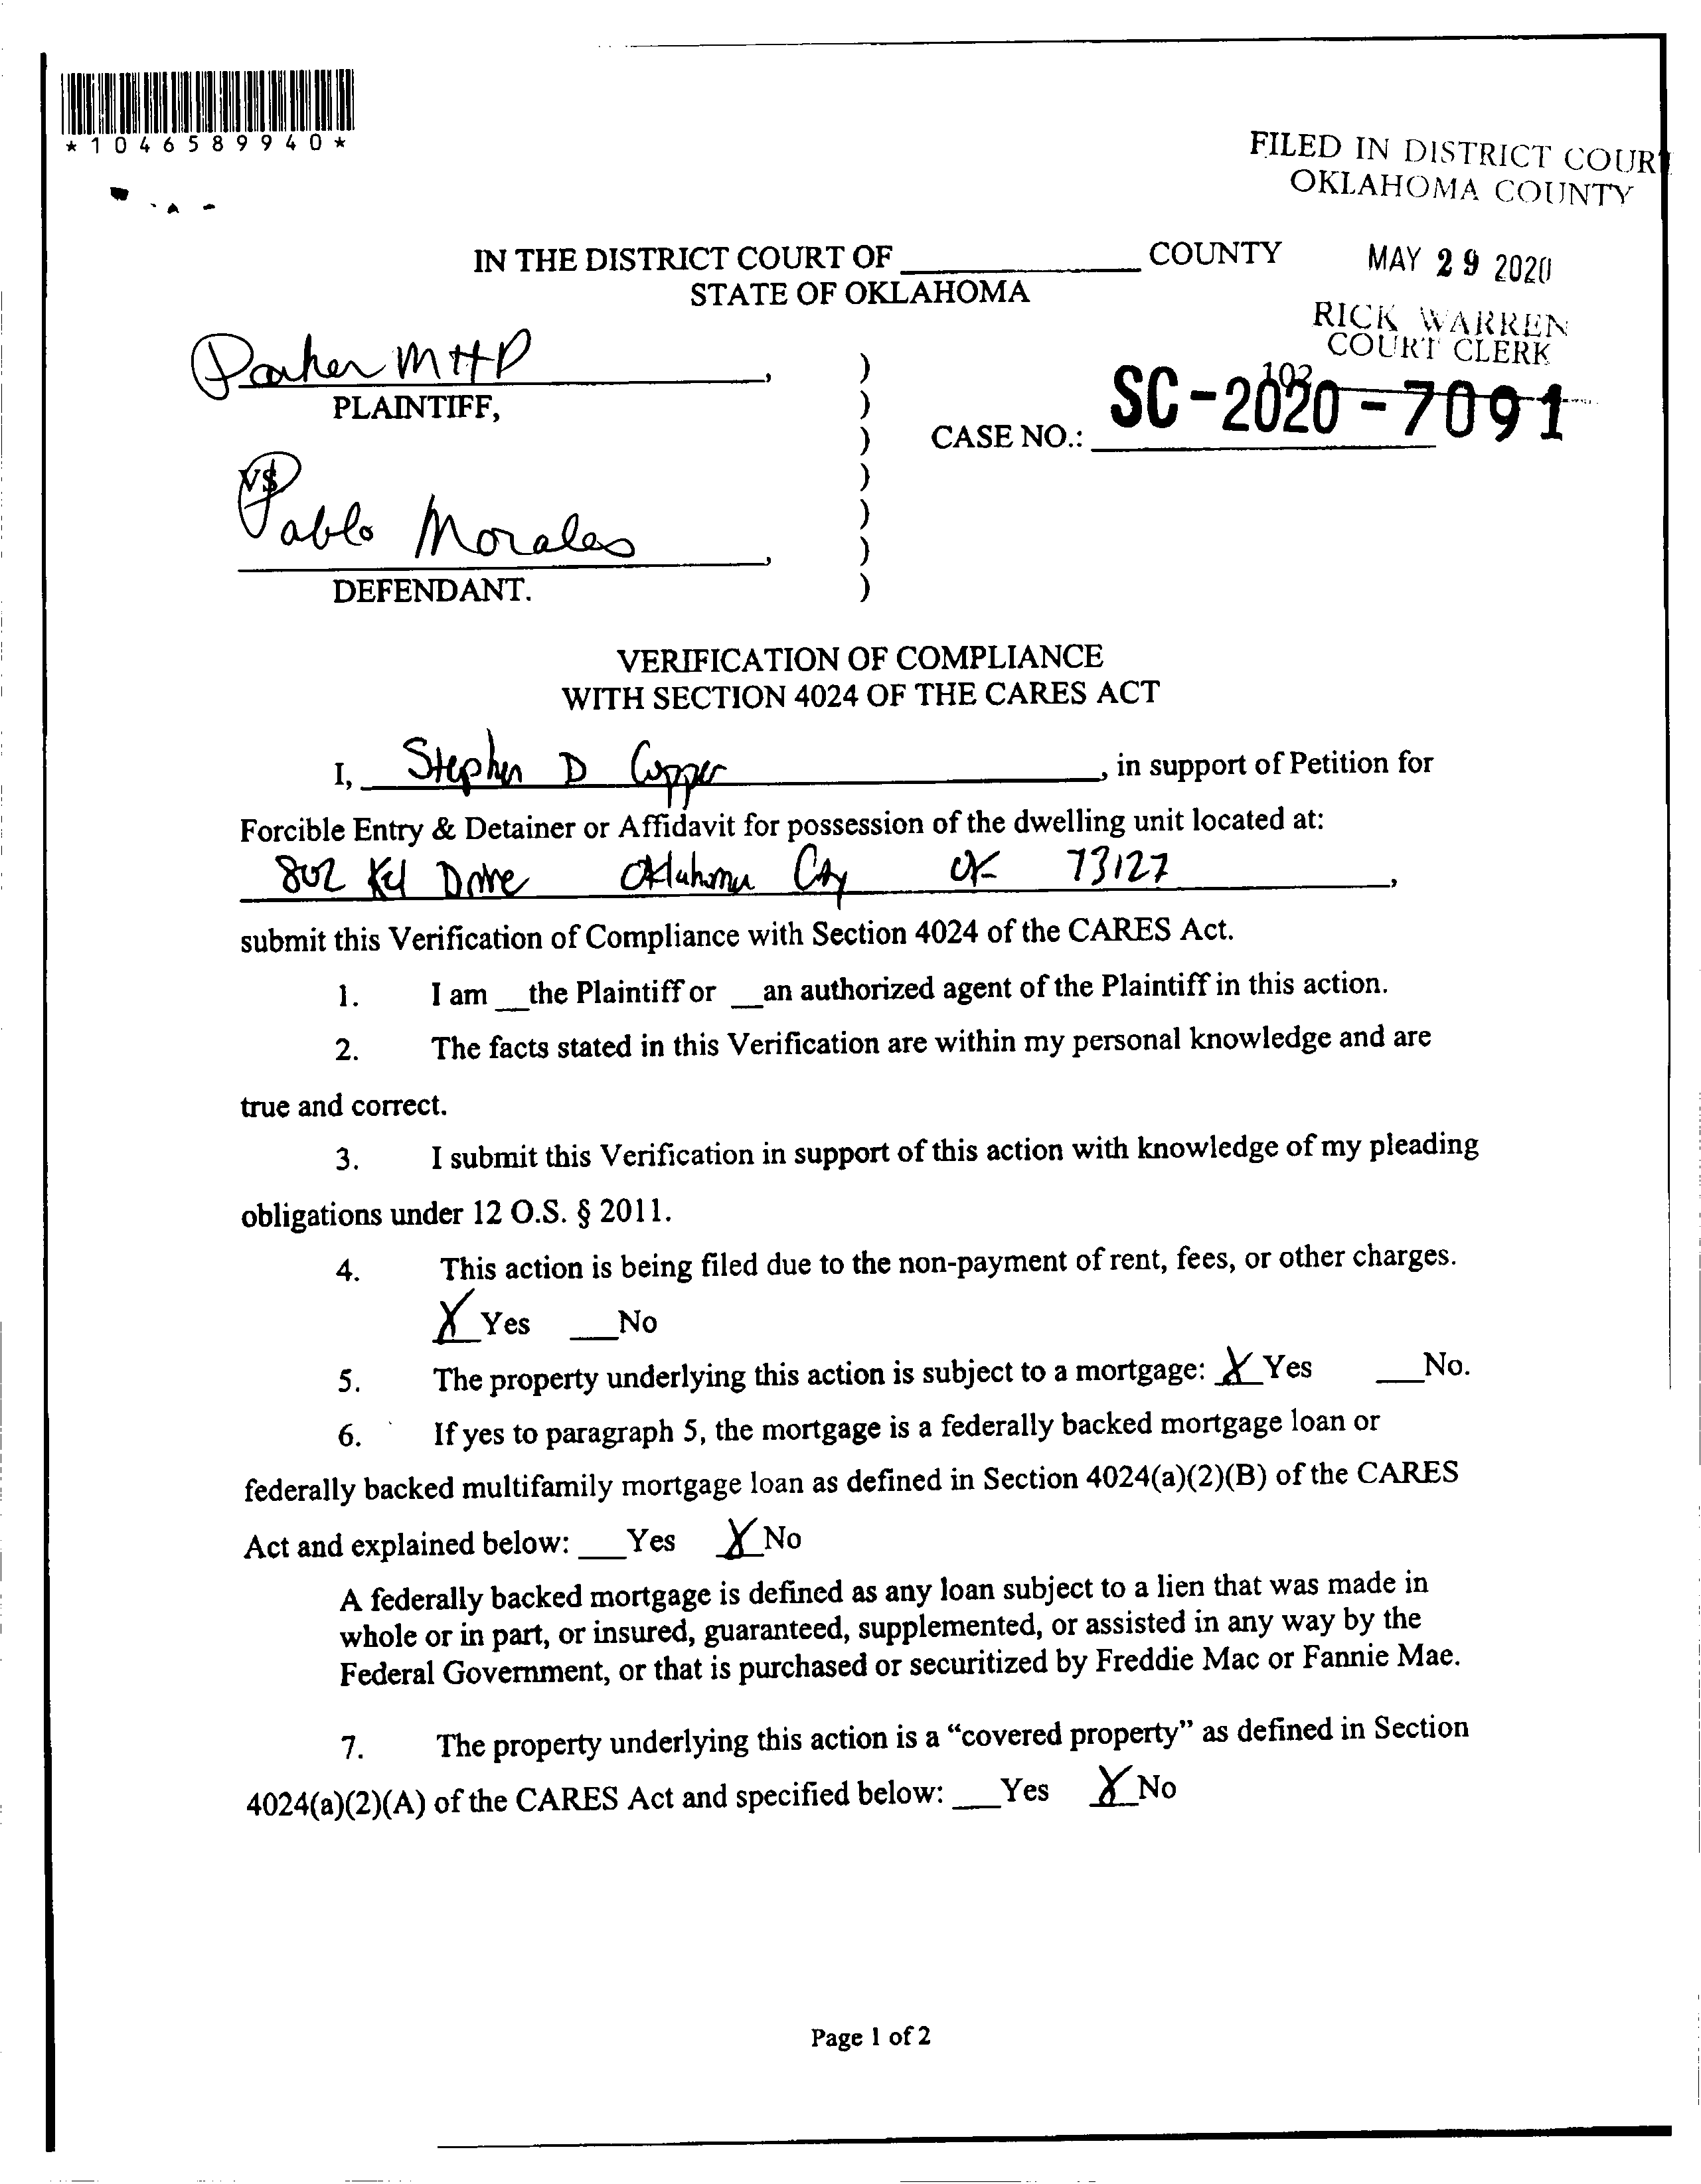 *1046589940*
FILED IN DISTRICT COUR
OKLAHOMA COUNTY
IN THE DISTRICT COURT OF ____________ COUNTY
MAY 29 2020
STATE OF OKLAHOMA
RICK WARREN
COURT CLERK
Parker MHP,
)
PLAINTIFF,
)
102
SC-2020-7091
CASE NO.:
)
VS
)
Pablo Morales,
)
)
DEFENDANT.
)
VERIFICATION OF COMPLIANCE
WITH SECTION 4024 OF THE CARES ACT
I, Stephen D Copper, in support of Petition for
Forcible Entry & Detainer or Affidavit for possession of the dwelling unit located at:
802 Drive Oklahoma City OK 73127,
submit this Verification of Compliance with Section 4024 of the CARES Act.
1. I am __the Plaintiff or __an authorized agent of the Plaintiff in this action.
2. The facts stated in this Verification are within my personal knowledge and are
true and correct.
3. I submit this Verification in support of this action with knowledge of my pleading
obligations under 12 O.S. § 2011.
4. This action is being filed due to the non-payment of rent, fees, or other charges.
X Yes ___No
5. The property underlying this action is subject to a mortgage: X Yes ___No.
6. If yes to paragraph 5, the mortgage is a federally backed mortgage loan or
federally backed multifamily mortgage loan as defined in Section 4024(a)(2)(B) of the CARES
Act and explained below: ___Yes X No
A federally backed mortgage is defined as any loan subject to a lien that was made in
whole or in part, or insured, guaranteed, supplemented, or assisted in any way by the
Federal Government, or that is purchased or securitized by Freddie Mac or Fannie Mae.
7. The property underlying this action is a “covered property” as defined in Section
4024(a)(2)(A) of the CARES Act and specified below: ___Yes X No
Page 1 of 2